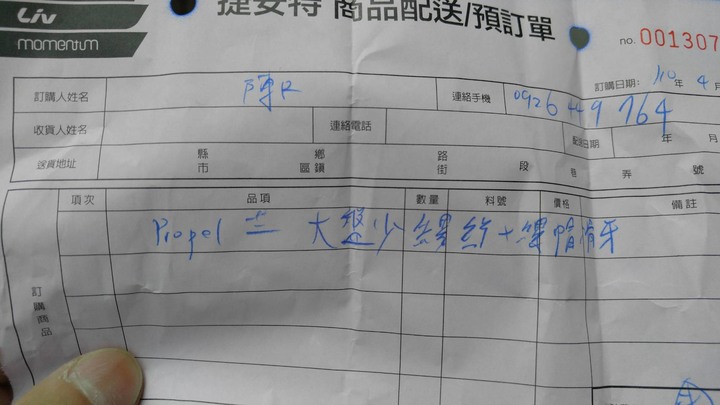 Liv
momentum
捷安特 商品配送/預訂單
no. 001307
訂購日期: 110 年 4 月
訂購人姓名 陳R 連絡手機 0926 449 764
收貨人姓名 連絡電話 配送日期 年 月
送貨地址 縣市 鄉區鎮 路街 段 巷 弄 號
項次 品項 數量 料號 價格 備註
Propel 大盤少螺絲+螺帽
訂購商品